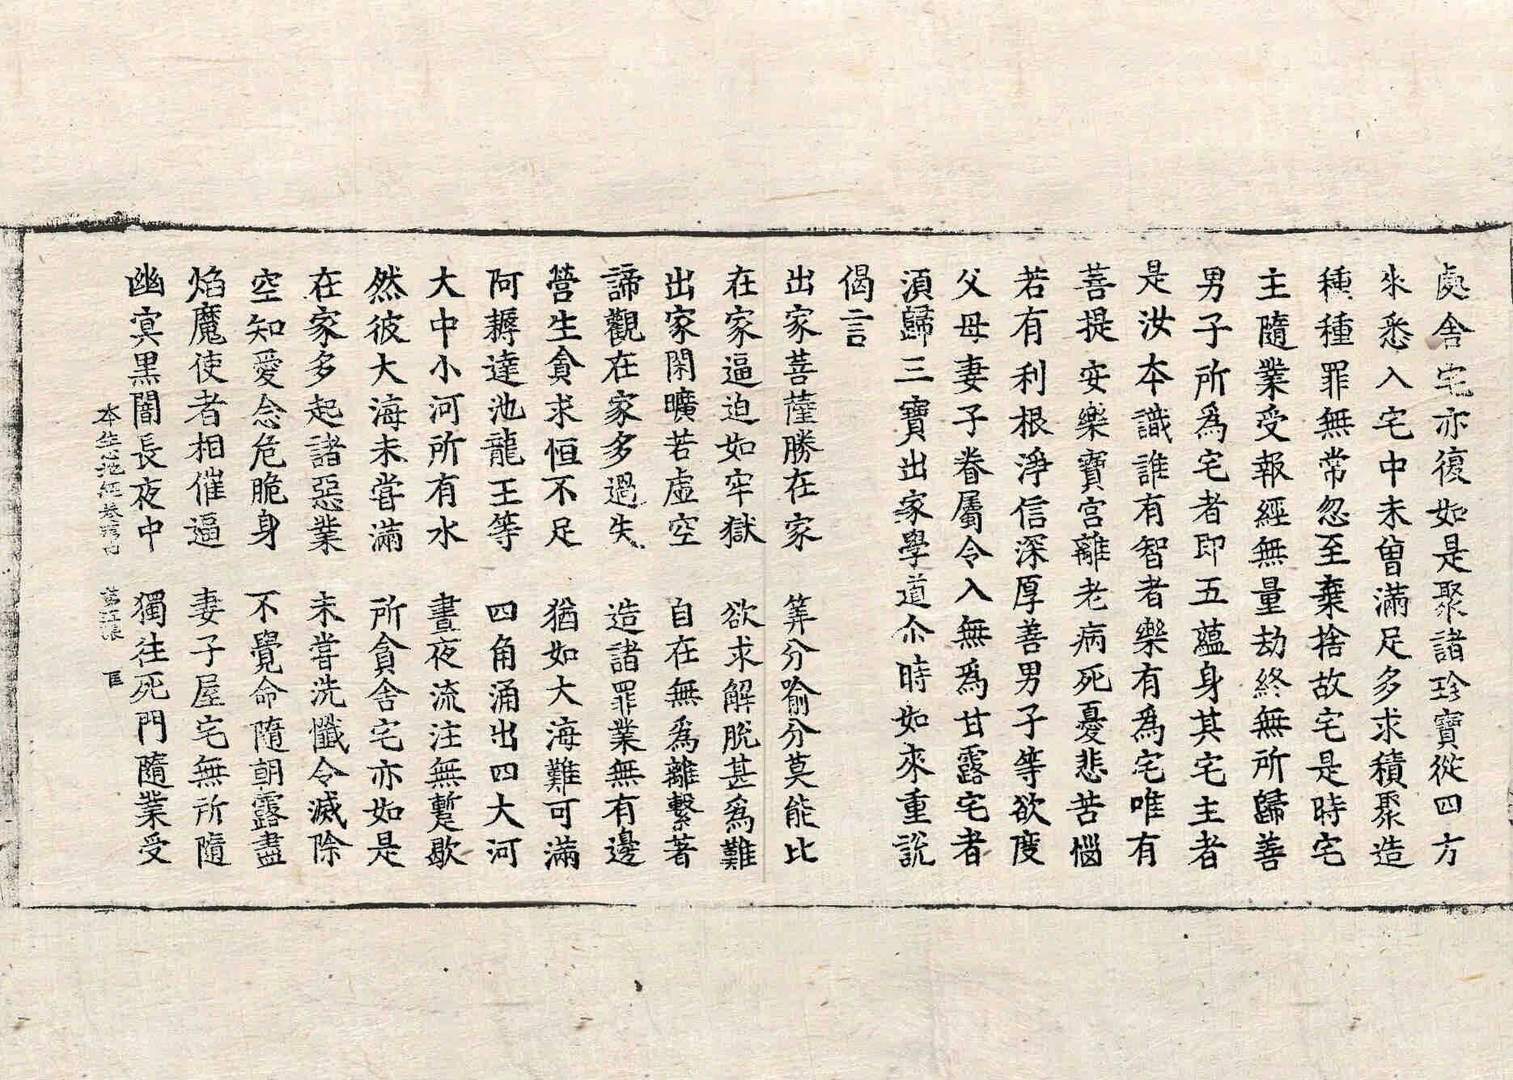 處舍宅亦復如是聚諸珍寶從四方
来悉入宅中未曾滿足多求積聚造
種種罪無常忽至棄捨故宅是時宅
主隨業受報經無量劫終無所歸善
男子所爲宅者即五蘊身其宅主者
是汝本識誰有智者樂有爲宅唯有
菩提安樂寶宮離老病死憂悲苦惱
若有利根淨信深厚善男子等欲度
父母妻子眷屬令入無爲甘露宅者
湏歸三寶出家學道尒時如來重說
偈言
出家菩薩勝在家　筭分喻分莫能比
在家逼迫如牢獄　欲求解脫甚爲難
出家閑曠若虛空　自在無爲離繫著
諦觀在家多過失　造諸罪業無有邊
營生貪求恒不足　猶如大海難可滿
阿耨達池龍王等　四角涌出四大河
大中小河所有水　晝夜流注無暫歇
然彼大海未甞滿　所貪舍宅亦如是
在家多起諸惡業　未甞洗懺令滅除
空知愛念危脆身　不覺命隨朝露盡
焰魔使者相催逼　妻子屋宅無所隨
幽冥黑闇長夜中　獨往死門隨業受
本生心地經卷第四　匡